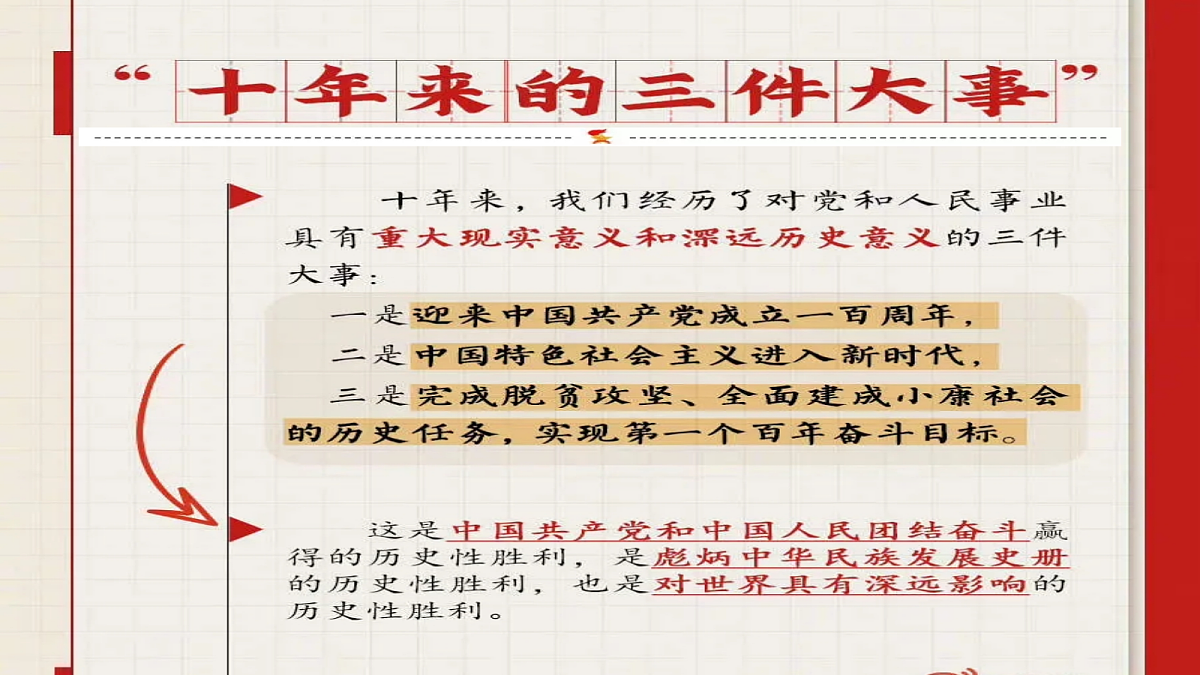 “十年来的三件大事”
十年来，我们经历了对党和人民事业
具有重大现实意义和深远历史意义的三件
大事：
一是迎来中国共产党成立一百周年，
二是中国特色社会主义进入新时代，
三是完成脱贫攻坚、全面建成小康社会
的历史任务，实现第一个百年奋斗目标。
这是中国共产党和中国人民团结奋斗赢
得的历史性胜利，是彪炳中华民族发展史册
的历史性胜利，也是对世界具有深远影响的
历史性胜利。